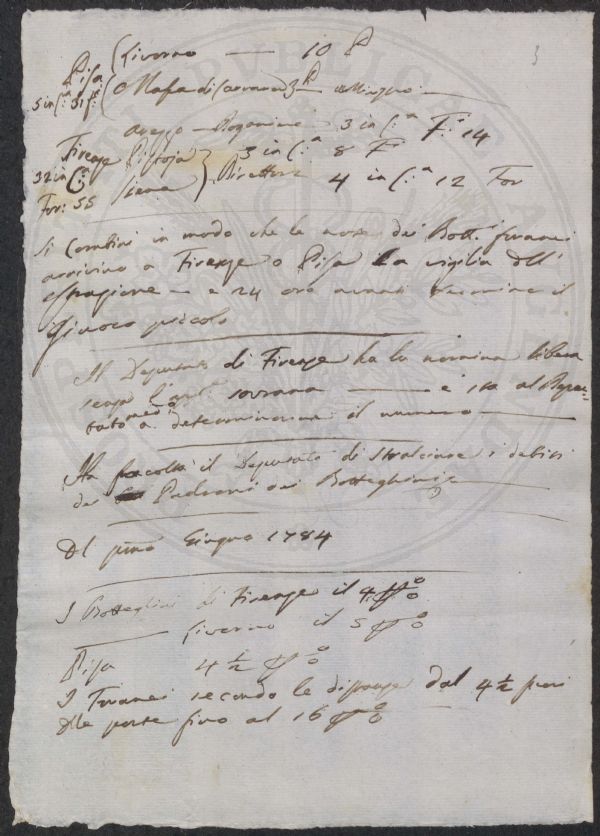 3
Pisa { Livorno — 10 P
5 in C.ª 31 f.
Massa di
Arezzo 3 in C.ª F.ª 14
Firenze Pistoja } 3 in C.ª 8 F
32 in C.ª Siena } Direttore 4 in C.ª 12 For
For: 55
Si combini in modo che le nove dai Bott. foranei
arrivino a Firenze o Pisa la vigilia dell'
estrazione — e 24 ore avanti termine il
Giuoco piccolo
Il Deputato di Firenze ha la nomina libera
senza l'app. sovrana — e sta al
a determinarne il numero
Ha facoltà il Deputato di stralciare i debiti
dei Padroni dai Botteghini
Al primo Giugno 1784
I Botteghini di Firenze il 4 p %
— Livorno il 5 p %
Pisa 4 ½ p %
I Foranei secondo le distanze dal 4 ½ fuori
delle porte fino al 16 p %